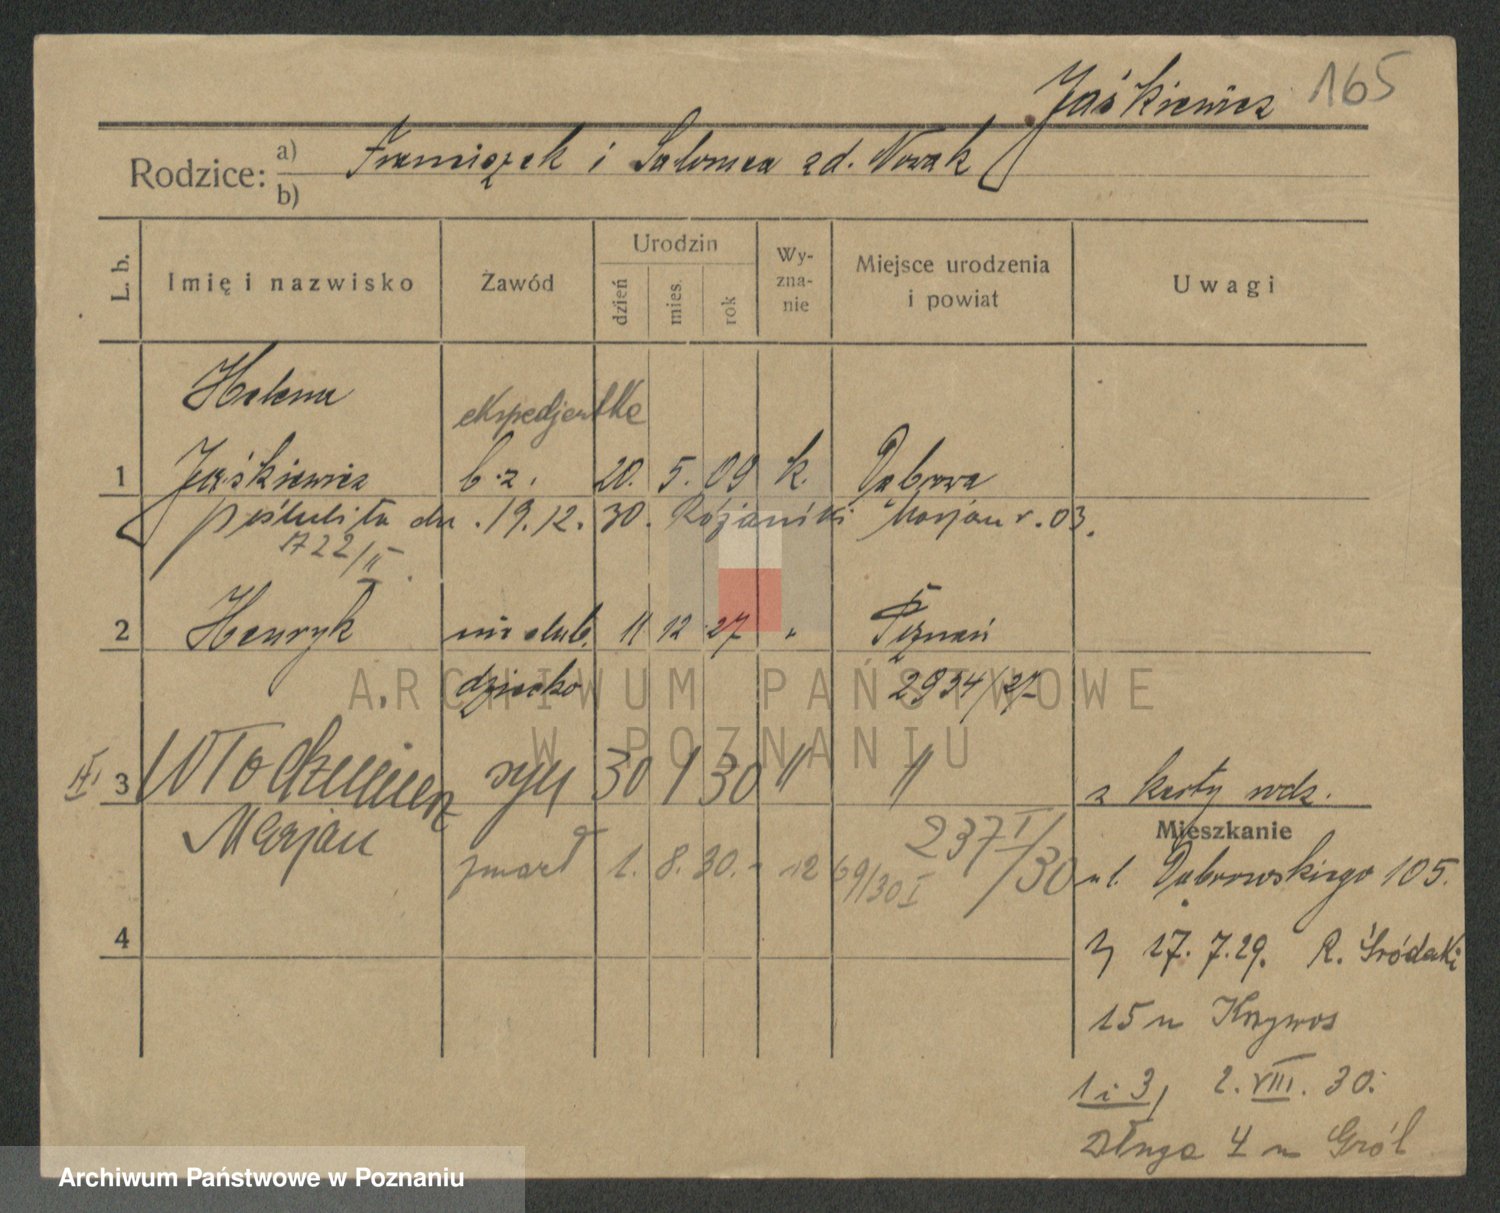 Jaśkiewicz 165
Rodzice: a) Franciszek i Salomea zd. Nowak
b)
L. b. Imię i nazwisko Zawód Urodzin dzień mies. rok Wyznanie Miejsce urodzenia i powiat Uwagi
Helena ekspedjentka
1 Jaśkiewicz b. z. 20. 5. 09 k. Dąbrowa
poślubiła dn. 19. 12. 30. Marjan r. 03.
1722/II
2 Henryk nieślub. 11 12 27 " Poznań
dziecko 2934/27
3 Włodzimierz syn 30 1 30 " " z karty wdz.
Marjan 237 I/30
Mieszkanie
zmarł 1. 8. 30. 1269/30 I ul. Dąbrowskiego 105.
4 17. 7. 29. R. Śródecki
15 u Krzywos
1 i 3, 2. VIII. 30.
Długa 4 u Król
ARCHIWUM PAŃSTWOWE
W POZNANIU
Archiwum Państwowe w Poznaniu